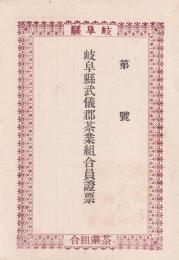 縣阜岐
第　號
岐阜縣武儀郡茶業組合員證票
合組業茶